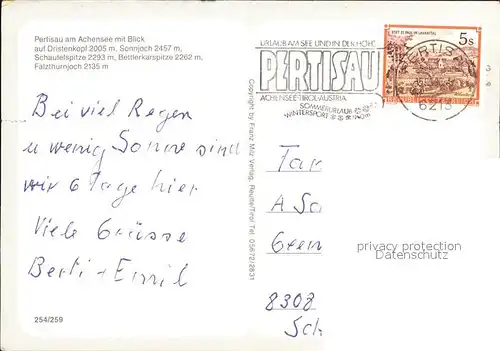 Pertisau am Achensee mit Blick
auf Dristenkopf 2005 m, Sonnjoch 2457 m,
Schaufelspitze 2293 m, Bettlerkarspitze 2262 m,
Falzthurnjoch 2135 m
URLAUB AM SEE UND IN DER HÖHE
PERTISAU
ACHENSEE-TIROL-AUSTRIA
SOMMERURLAUB
WINTERSPORT
STIFT ST. PAUL IM LAVANTTAL
5 s
PERTIS
6213
Bei viel Regen
u wenig Sonne sind
wir 6 Tage hier
Viele Grüsse
Berti + Emil
254/259
Copyright by Franz Milz Verlag, Reutte/Tirol Tel. 05672/2831
8308
Sch
privacy protection
Datenschutz